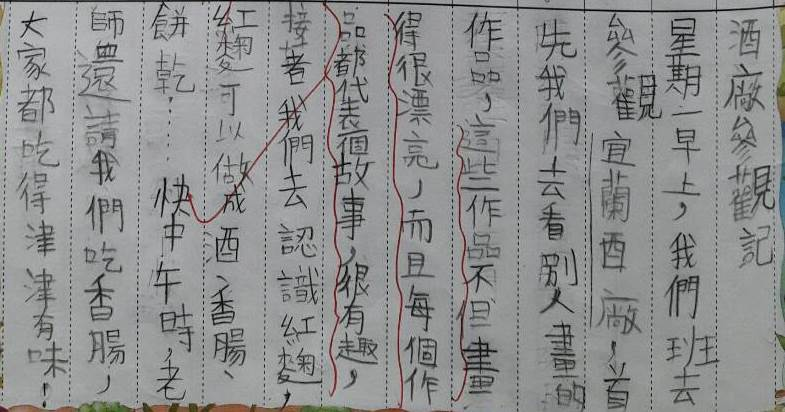 酒廠參觀記
星期一早上，我們班去
參觀宜蘭酉廠，首
先我們去看別人畫的
作品，這些作品不但畫
得很漂亮，而且每個作
品都代表個故事，很有趣，
接著我們去認識紅麴，
紅麴可以做成酒、香腸、
餅乾……快中午時，老
師還請我們吃香腸，
大家都吃得津津有味！